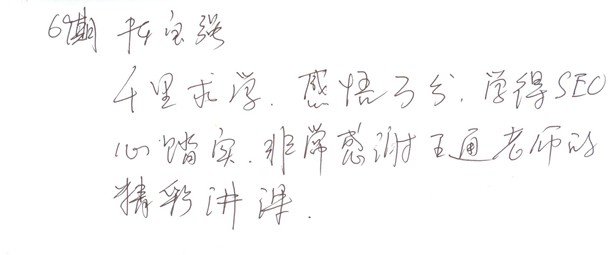 69期 陈宝强
千里求学.感悟万分.学得SEO
心踏实.非常感谢王通老师的
精彩讲课.